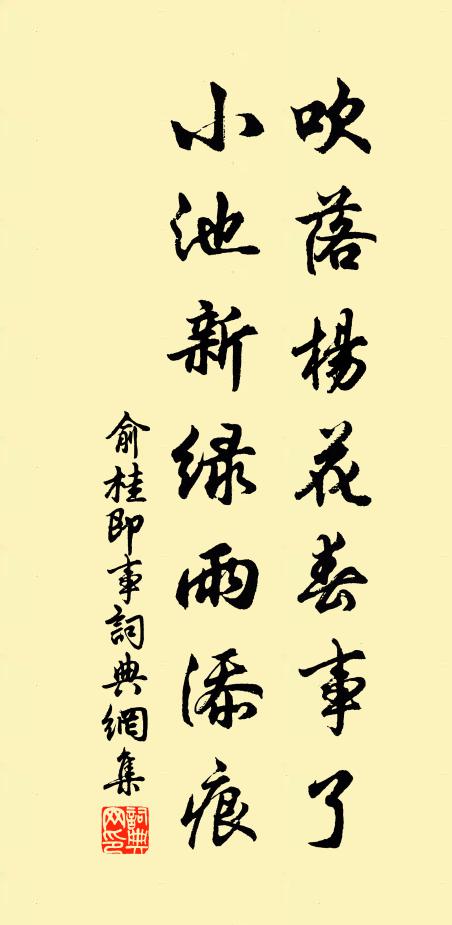 吹落楊花春事了
小池新绿雨添痕
俞桂即事詞典網集
詞典網印